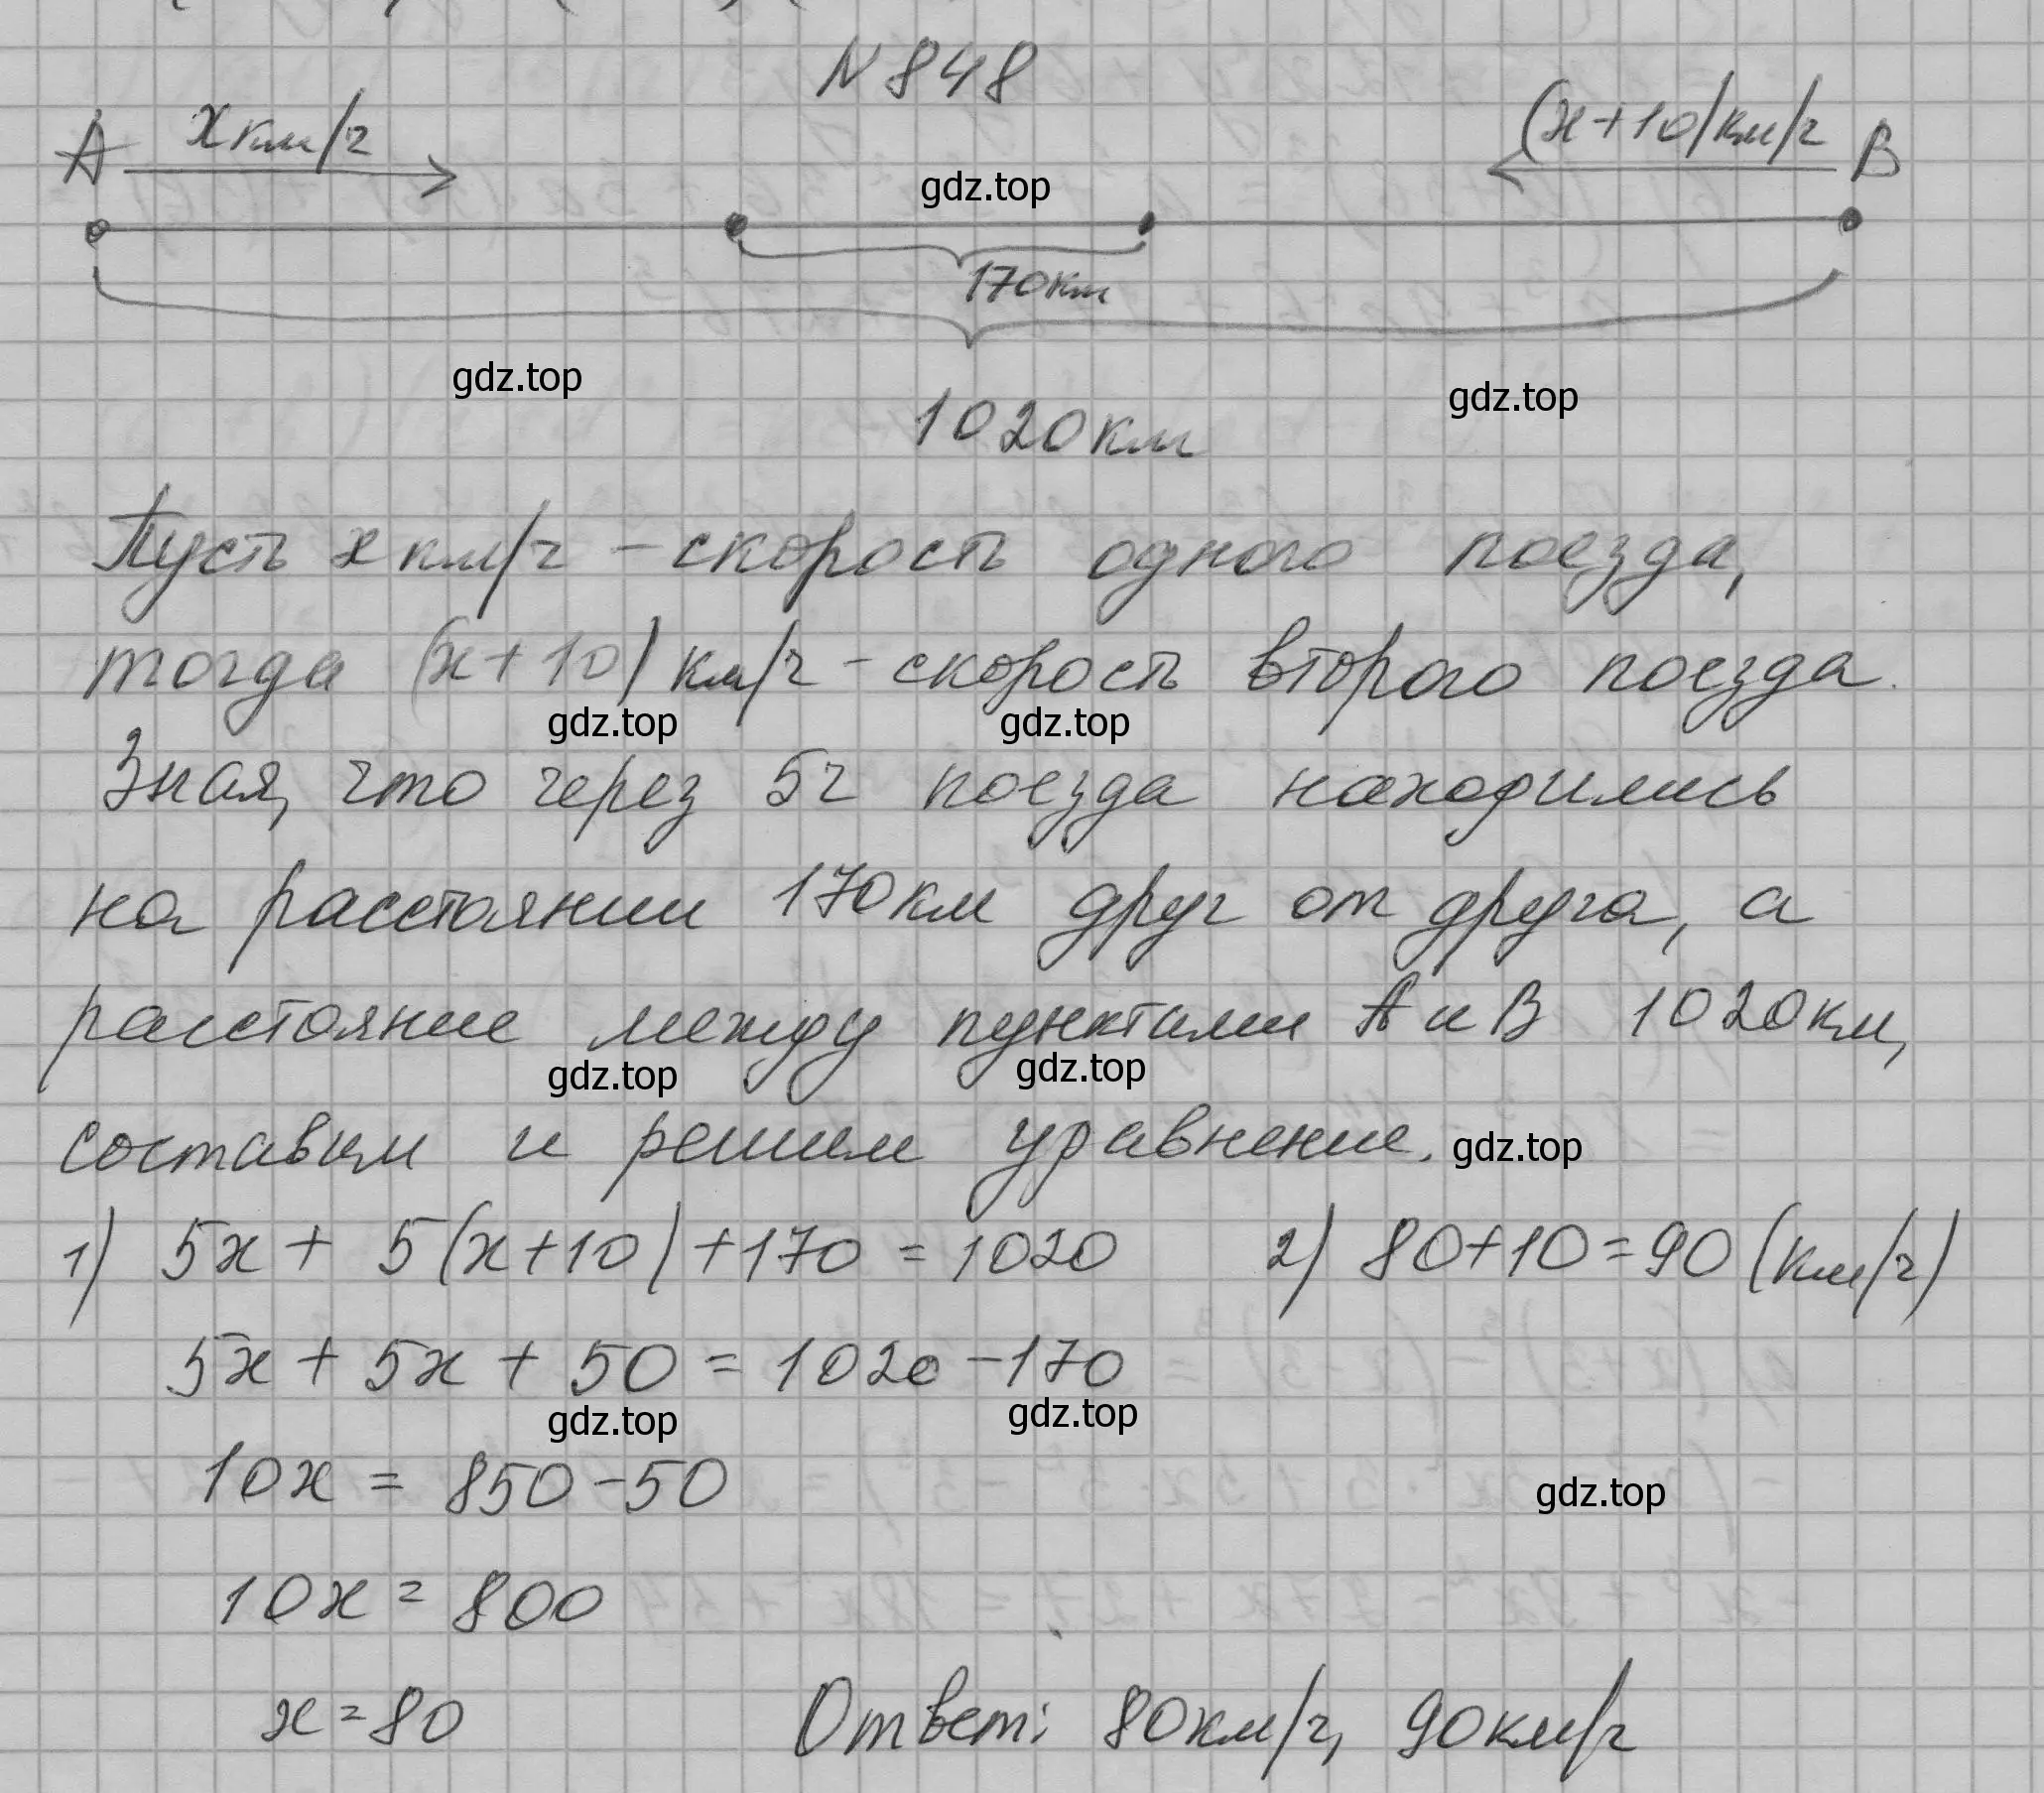 N 848
A x км/ч (x+10) км/ч B
gdz.top
170 км
gdz.top gdz.top
1020 км
Пусть x км/ч - скорость одного поезда,
тогда (x+10) км/ч - скорость второго поезда.
gdz.top gdz.top
Зная, что через 5ч поезда находились
на расстоянии 170 км друг от друга, а
расстояние между пунктами A и B 1020 км,
gdz.top gdz.top
составим и решим уравнение. gdz.top
1) 5x + 5(x+10) + 170 = 1020 2) 80+10=90 (км/ч)
5x + 5x + 50 = 1020 - 170
gdz.top gdz.top
10x = 850 - 50
gdz.top
10x = 800
x = 80 Ответ: 80 км/ч, 90 км/ч